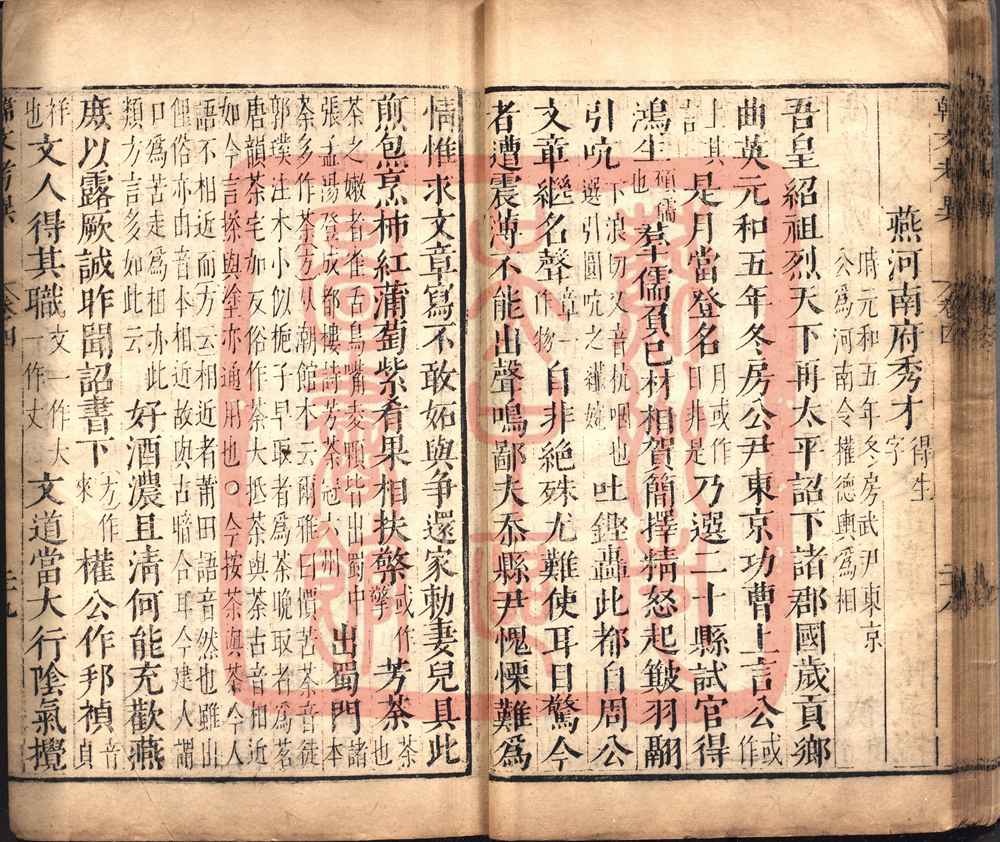 燕河南府秀才 得生字
時元和五年冬房武尹東京
公為河南令權德輿為相
吾皇紹祖烈天下再太平詔下諸郡國歲貢鄉
曲英元和五年冬房公尹東京功曹上言公 或作
上其詔 是月當登名 月或作日非是 乃選二十縣試官得
鴻生 頭儒也 羣儒負己材相賀簡擇精怒起簸羽翮
引吭 下浪切又音杭咽也選引圓吭之纖婉 吐鏗轟此都自周公
文章繼名聲 章一作物 自非絕殊尤難使耳目驚今
者遭震薄不能出聲鳴鄙夫忝縣尹愧慄難為
情惟求文章寫不敢妬與争還家勅妻兒具此
煎炰烹柿紅蒲萄紫肴果相扶檠 或作擎 芳荼 荼也
茶之嫩者雀舌鳥嘴麥顆皆出蜀中
張孟陽登成都樓詩芳荼冠六州 出蜀門 諸本
荼多作荼方從潮館本云爾雅曰檟苦荼音徒
郭璞注木小似梔子早取者為荼晚取者為茗
唐韻荼宅加反俗作茶大抵荼與荼古音相近
如今言搽與塗亦通用也○今按荼與茶今人
語不相近而方云相近者莆田語音然也雖出
俚俗亦由音本相近故與古暗合耳今建人謂
口為苦走為祖亦此
類方言多如此云 好酒濃且清何能充歡燕
庶以露厥誠昨聞詔書下 方作來 權公作邦禎 音貞
祥也 文人得其職 文一作大一作丈 文道當大行陰氣攪
韓文考異 卷四